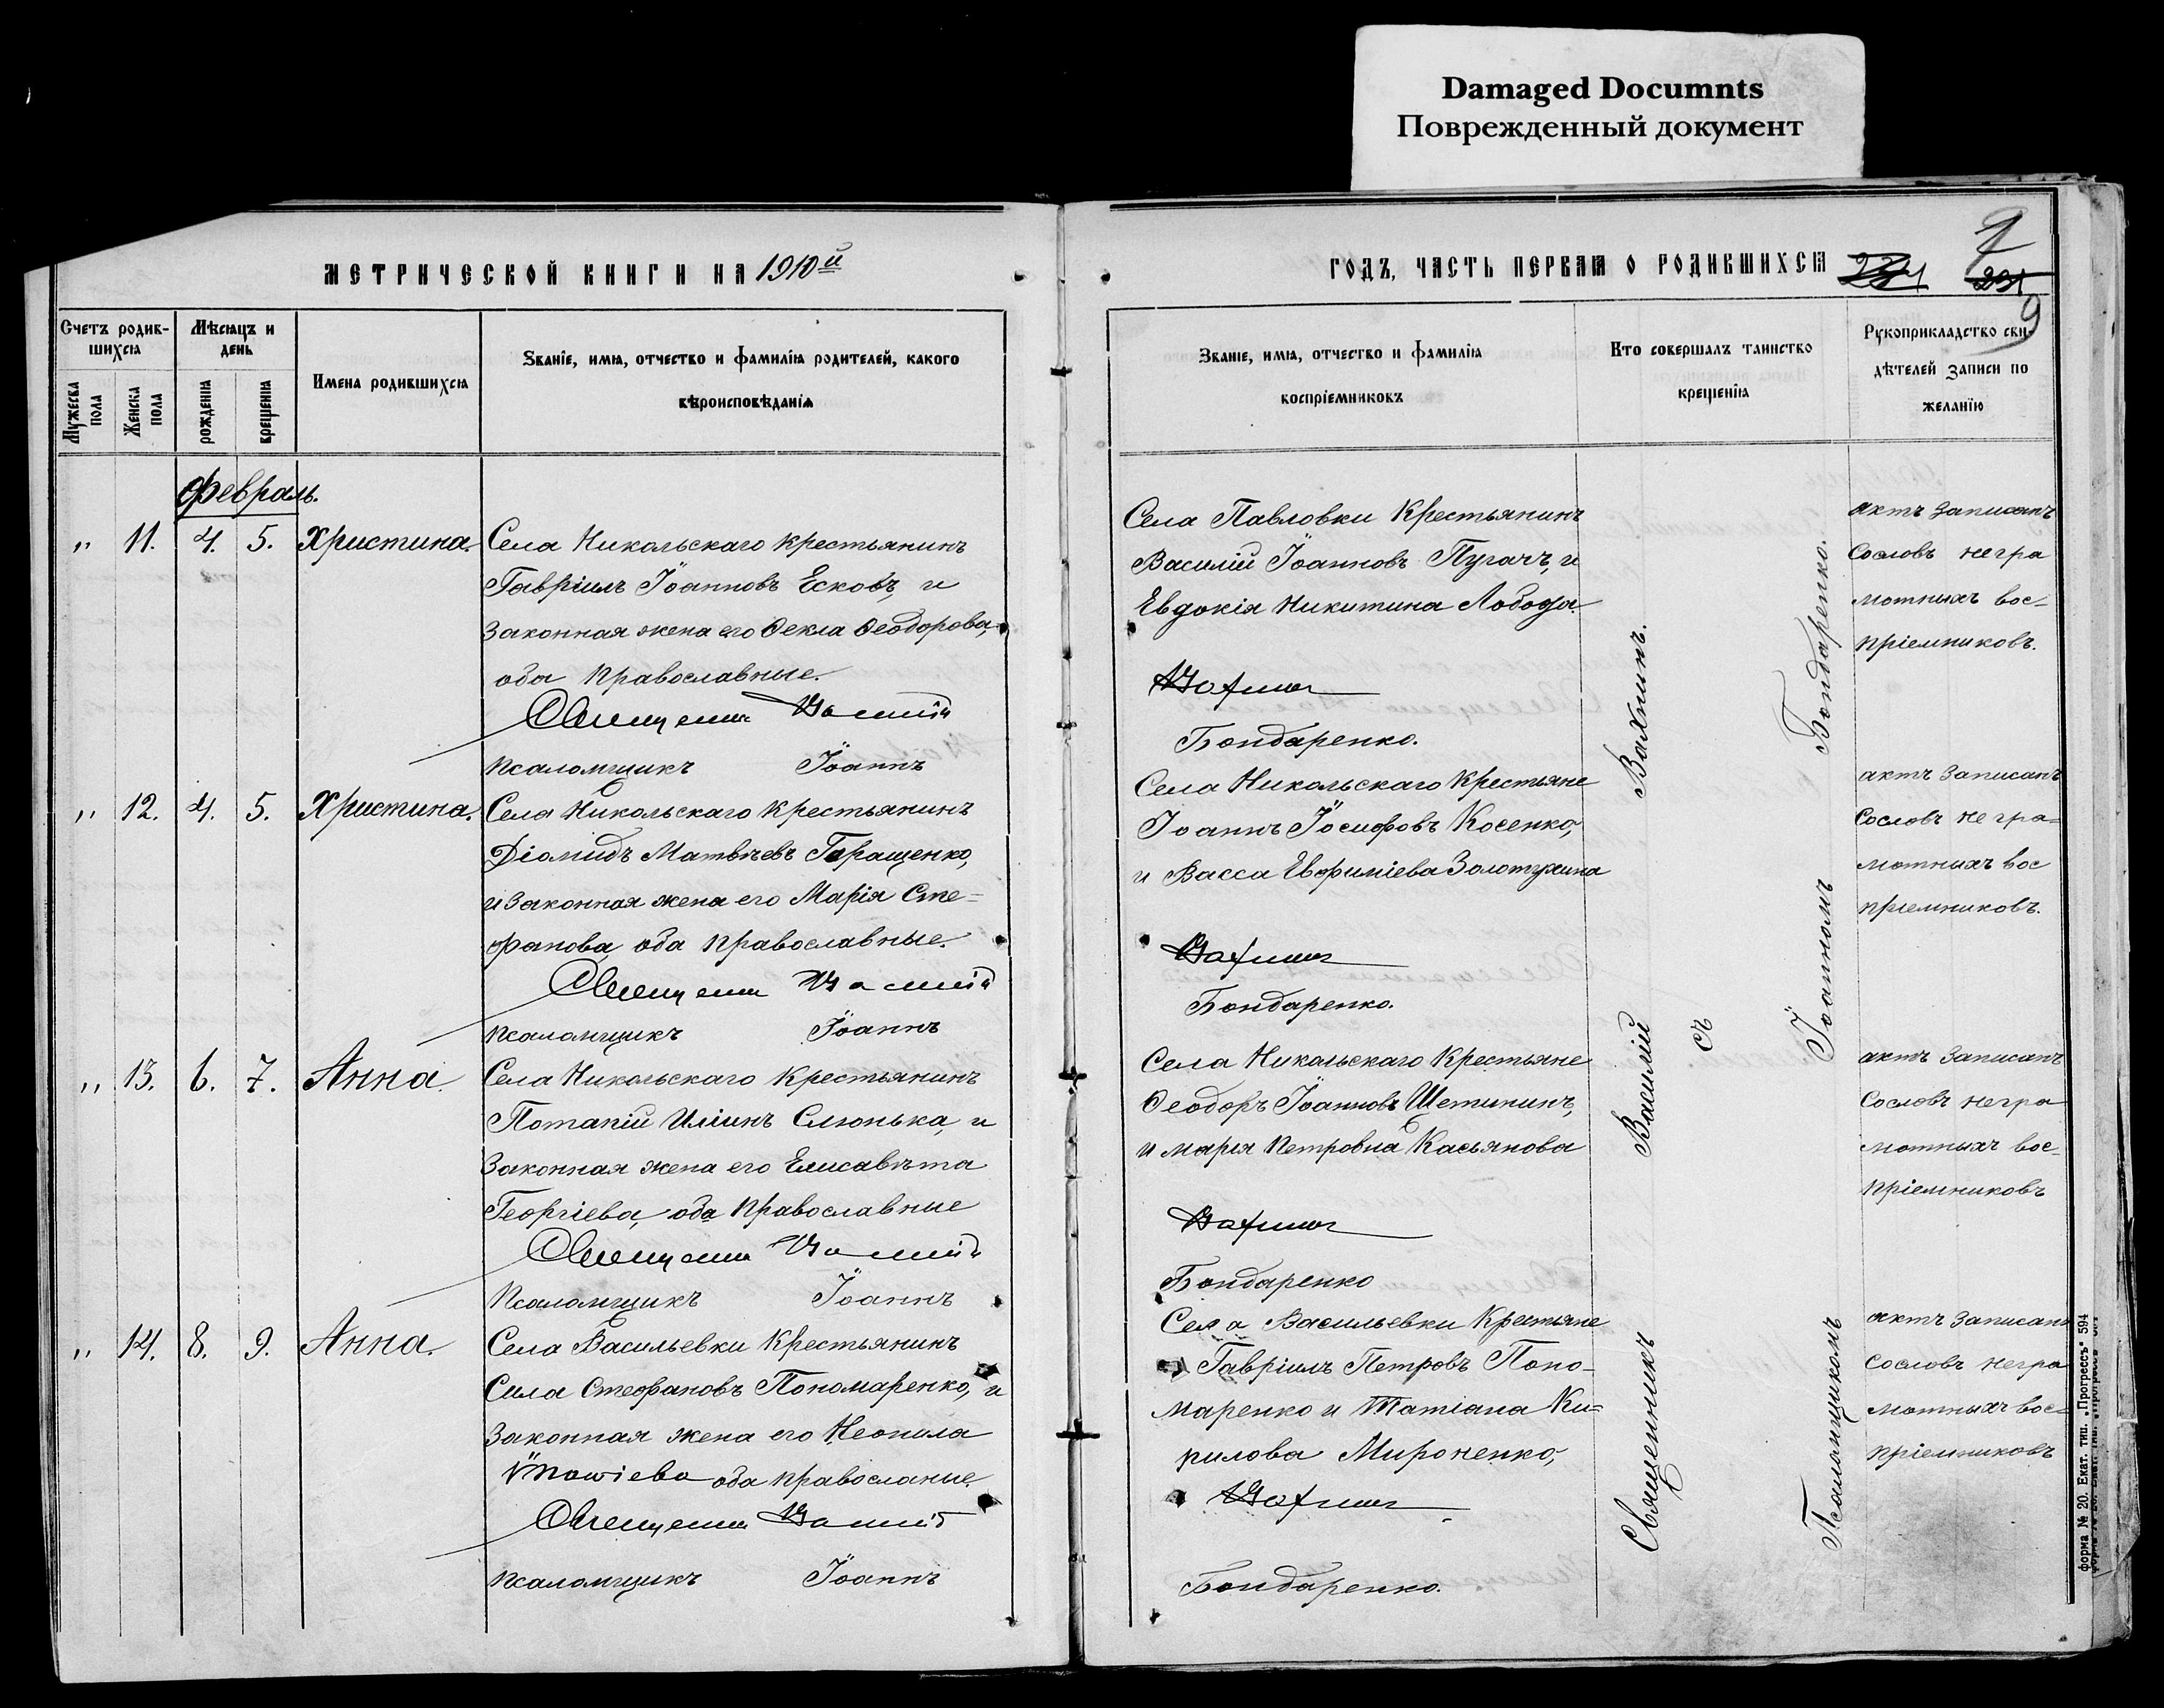 Damaged Documnts
Поврежденный документ
МЕТРИЧЕСКОЙ КНИГИ НА 1910й
Счетъ родив-
шихся
Мѣсяцъ и
день
Мужеска
пола
Женска
пола
рожденія
крещенія
Имена родившихся
Званіе, имя, отчество и фамилія родителей, какого
вѣроисповѣданія
Февраль.
„ 11. 4. 5. Христина. Села Никольскаго крестьянинъ
Гавріилъ Іоанновъ Есковъ, и
законная жена его Ѳекла Ѳеодорова,
оба православные.
Священникъ Василій
псаломщикъ Іоаннъ
„ 12. 4. 5. Христина. Села Никольскаго крестьянинъ
Діомидъ Матвѣевъ Геращенко,
и законная жена его Марія Сте=
фанова, оба православные.
Священникъ Василій
псаломщикъ Іоаннъ
„ 13. 6. 7. Анна. Села Никольскаго крестьянинъ
Потапій Иліинъ Слюнька, и
законная жена его Елисавѣта
Георгіева, оба православные
Священникъ Василій
псаломщикъ Іоаннъ
„ 14. 8. 9. Анна. Села Васильевки крестьянинъ
Сила Стефановъ Пономаренко, и
законная жена его Неонила
оба правосланые.
Священникъ Василій
псаломщикъ Іоаннъ
ГОДЪ, ЧАСТЬ ПЕРВАЯ О РОДИВШИХСЯ
9
Званіе, имя, отчество и фамилія
воспріемниковъ
Кто совершалъ таинство
крещенія
Рукоприкладство сви-
дѣтелей записи по
желанію
Села Павловки крестьянинъ
Василій Іоанновъ Пугачъ, и
Евдокія Никитина Лобода.
Вахнинъ
Бондаренко.
Села Никольскаго крестьяне
Іоаннъ Іосифовъ Косенко,
и Васса Евфиміева Золотухина
Вахнинъ
Бондаренко.
Села Никольскаго крестьяне
Ѳеодоръ Іоанновъ Щетининъ,
и Марія Петровна Касьянова
Вахнинъ
Бондаренко
Села Васильевки крестьяне
Гавріилъ Петровъ Поно-
маренко и Татіана Ки=
рилова Мироненко,
Вахнинъ
Бондаренко.
Священникъ Василій Вахнинъ.
съ
Псаломщикомъ Іоанномъ Бондаренко.
актъ записанъ
сословъ негра
мотныхъ вос-
пріемниковъ.
актъ записанъ
сословъ негра=
мотныхъ вос
пріемниковъ.
актъ записанъ
сословъ негра
мотныхъ вос-
пріемниковъ
актъ записанъ
сословъ негра
мотныхъ вос=
пріемниковъ
форма № 20. Екат. тип. „Прогрессъ" 594